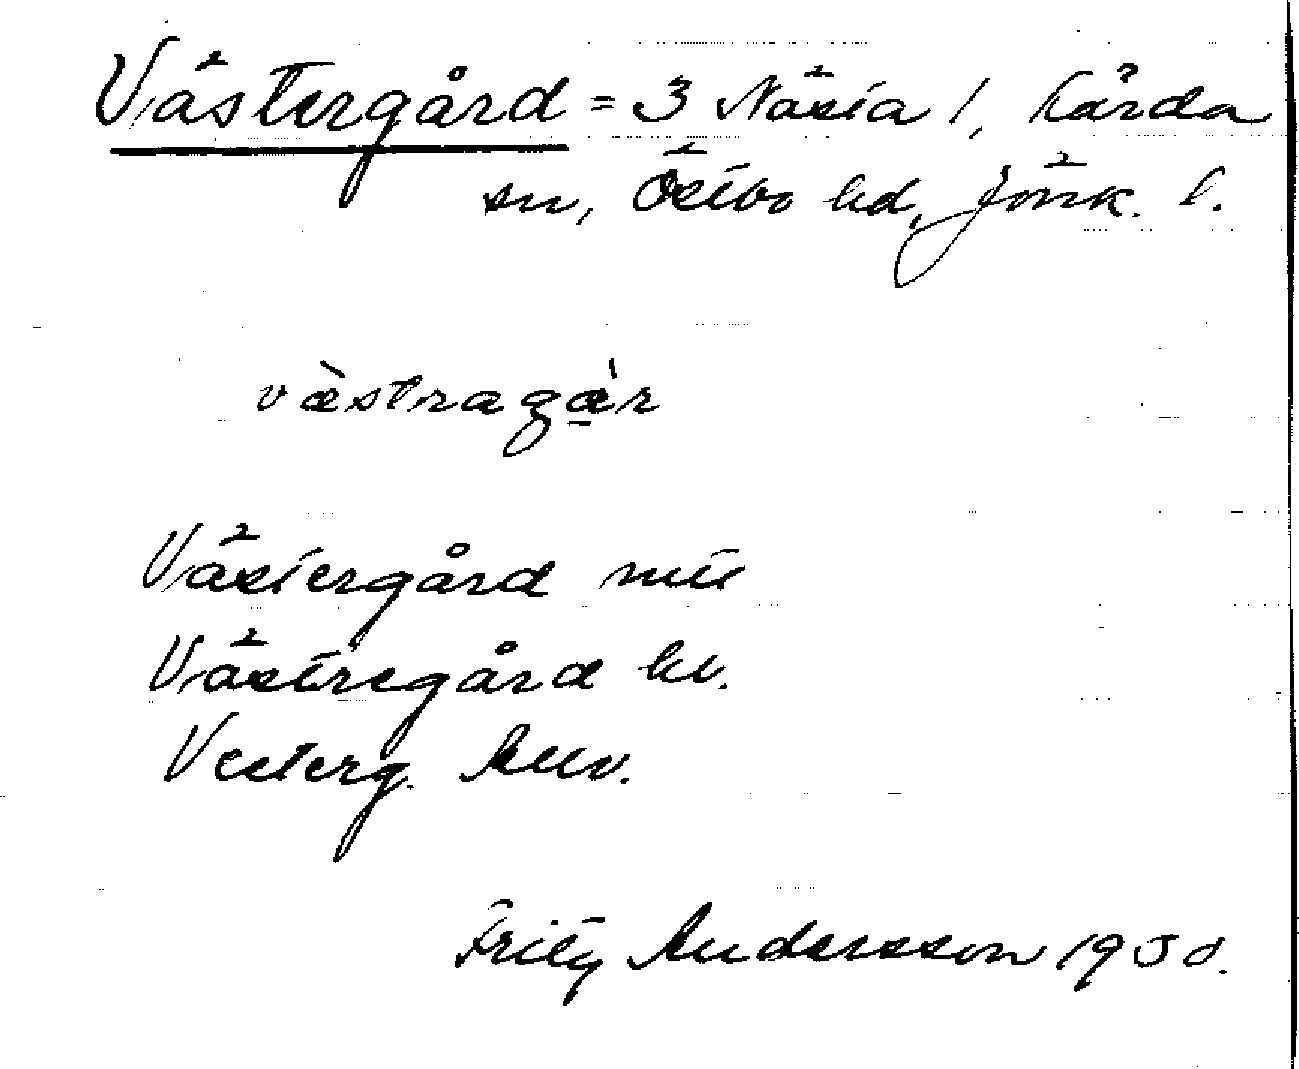 Västergård = 3 Nästa 1, Kärda
sn, Östbo hd, Jönk. l.
västragær
Västergård mtl
Västregård kv.
Vesterg. Arv.
Frity Andersson 1930.